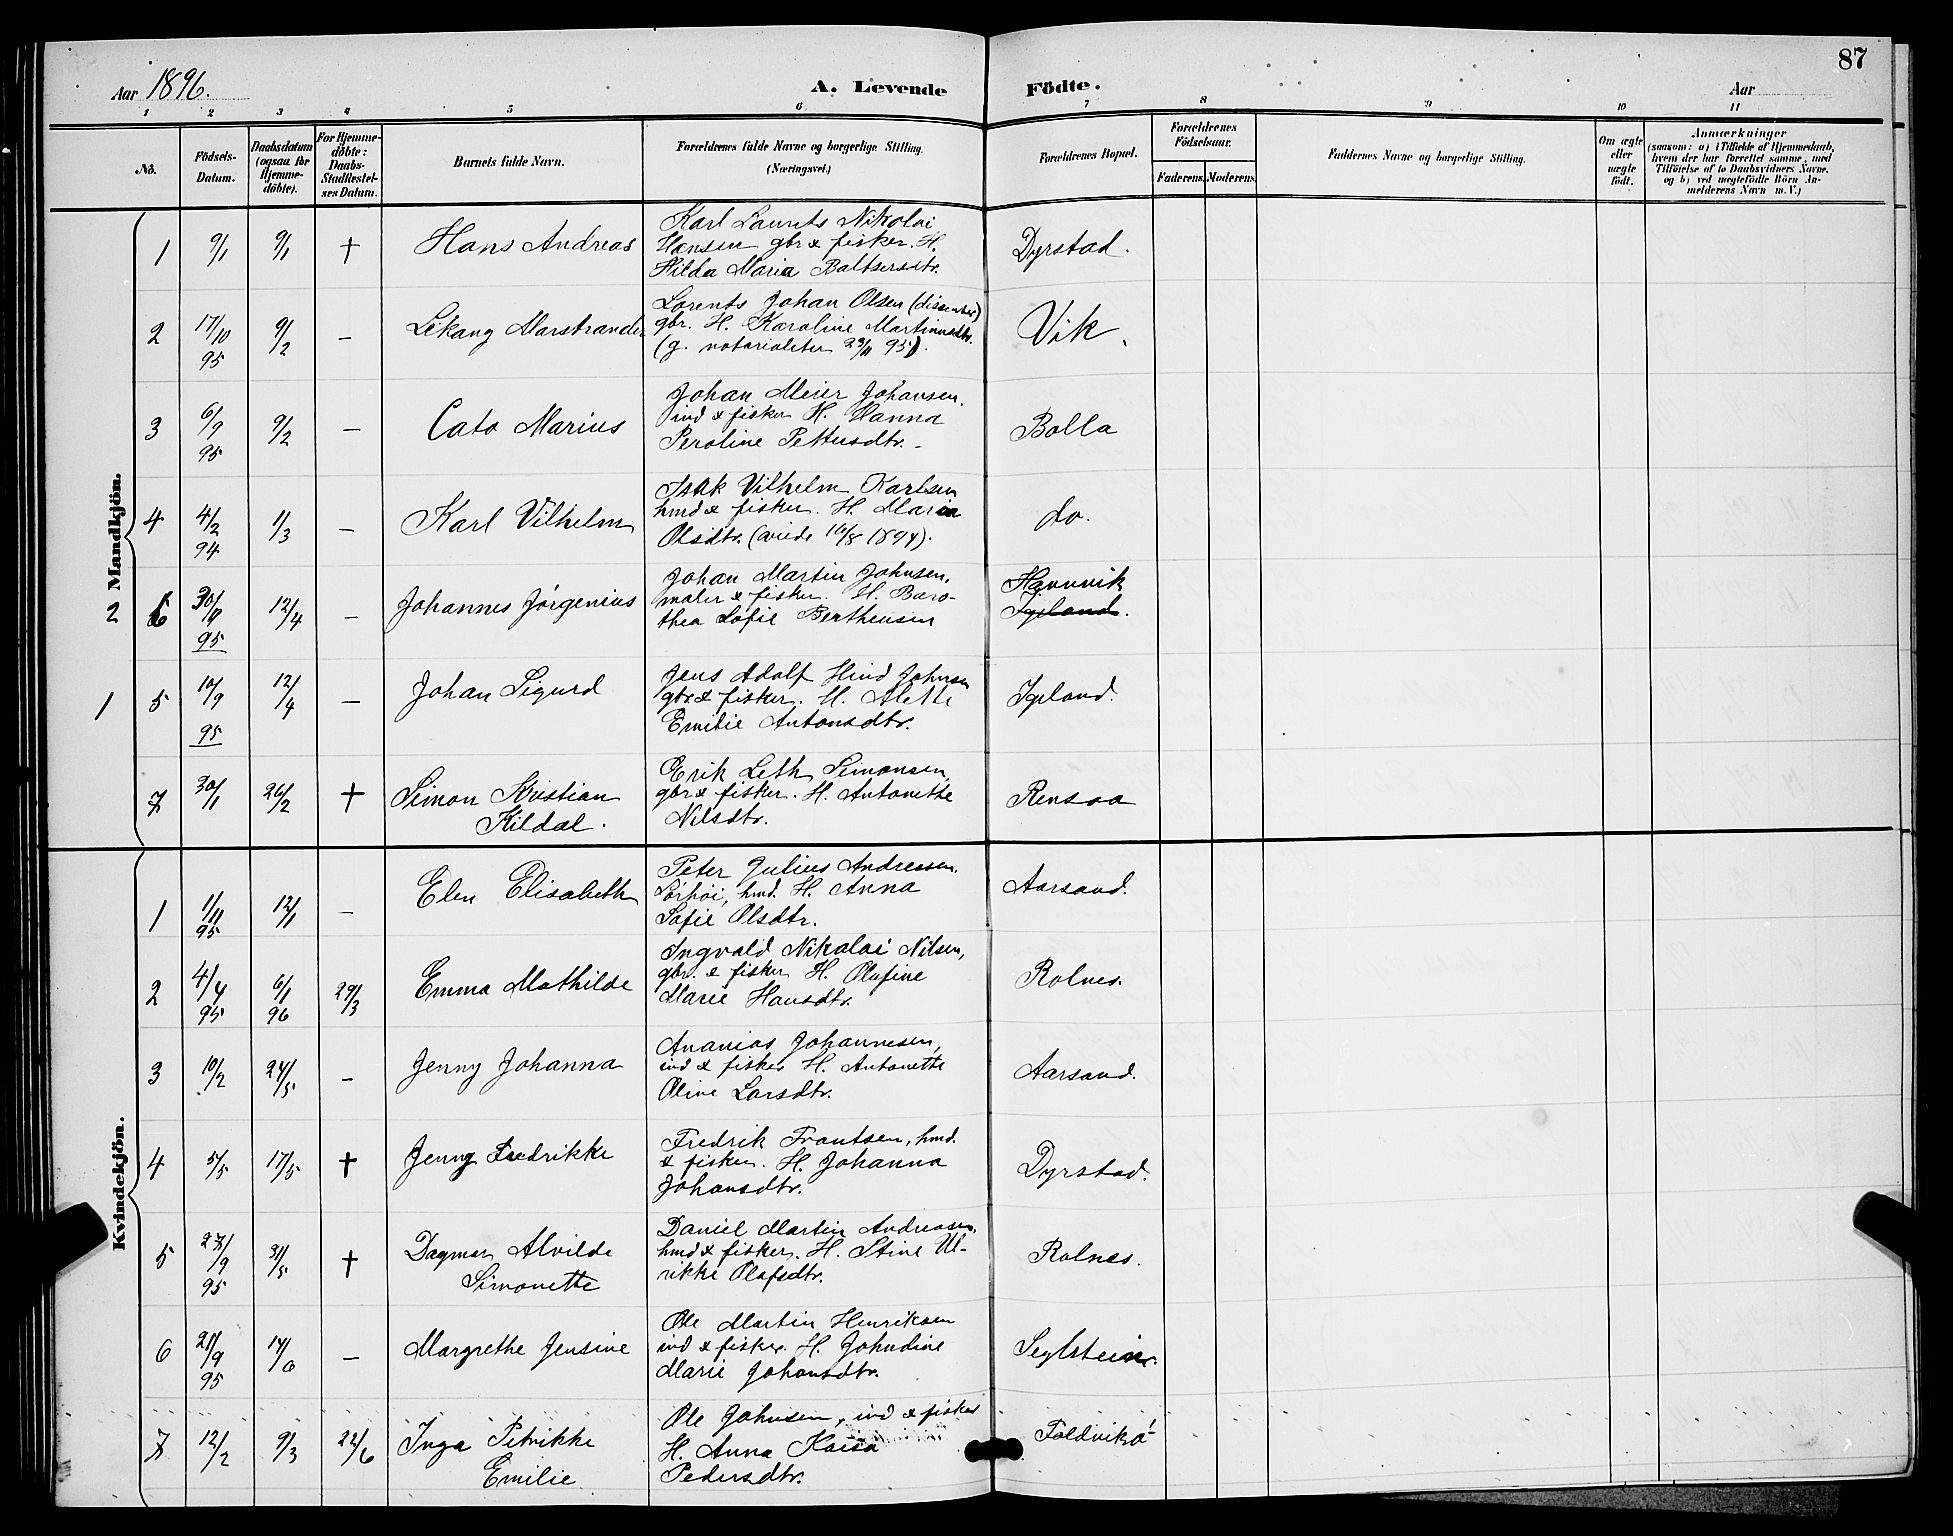 87
Aar 1896.
A. Levende Födte.
Aar
1 2 3 4 5 6 7 8 9 10 11
No.
Födsels-Datum.
Daabsdatum (ogsaa for Hjemme-döbte).
For Hjemme-döbte: Daabs-Stadfæstel-ses Datum.
Barnets fulde Navn.
Forældrenes fulde Navne og borgerlige Stilling. (Næringsvei.)
Forældrenes Bopæl.
Forældrenes Födselsaar.
Faderens. Moderens.
Faddernes Navne og borgerlige Stilling.
Om ægte eller uægte födt.
Anmærkninger
(saasom: a) i Tilfælde af Hjemmedaab,
hvem der har forrettet samme, med
Tilföielse af to Daabsvidners Navne,
og b) ved uægtefödte Börn An-
melderens Navn m. V.)
Mandkjön.
1 9/1 9/1 † Hans Andreas
Karl Laurits Nikolai
Hansen gbr & fisker. H.
Hilda Maria Baltsersdtr.
Dyrstad.
2 17/10 95 9/2 — Lekang Marstrander
Lorents Johan Olsen (dissenter)
gbr. H. Karoline Martinusdtr.
(g. notarialiter 29/11 95).
Vik.
3 6/9 95 9/2 — Cato Marius
Johan Meier Johansen.
ind & fisker H. Hanna
Peroline Pettersdtr.
Bolla
4 4/2 94 1/3 — Karl Vilhelm
Isak Vilhelm Karlsen
hmd & fisker. H. Maria
Olsdtr. (viede 16/8 1894).
do.
2 6 30/9 95 12/4 — Johannes Jørgenius
Johan Martin Johnsen,
maler & fisker. H. Baro-
thea Sofie Bertheusen
Hamnvik
Igeland.
1 5 10/9 95 12/4 — Johan Sigurd
Jens Adolf Hind Johnsen
gbr & fisker. H. Alette
Emilie Antonsdtr.
Igeland.
7 30/1 26/2 † Simon Kristian
Kildal.
Erik Leth Simonsen,
gbr & fisker. H. Antonette
Nilsdtr.
Rensaa
Kvindekjön.
1 1/11 95 12/1 — Elen Elisabeth
Peter Julius Andreasen
Sørhøi, hmd. H. Anna
Sofie Olsdtr.
Aarsand.
2 4/4 95 6/1 96 29/3 Emma Mathilde
Ingvald Nikolai Nilsen,
gbr. & fisker H. Olufine
Marie Hansdtr.
Rolnes.
3 10/2 24/5 — Jenny Johanna
Ananias Johannesen,
ind & fisker H. Antonette
Oline Larsdtr.
Aarsand.
4 5/5 17/5 † Jenny Fredrikke
Fredrik Frantsen, hmd.
& fisker. H. Johanna
Johansdtr.
Dyrstad.
5 27/9 95 31/5 † Dagmar Alvilde
Simonette
Daniel Martin Andreasen,
hmd & fisker. H. Stine Ul-
rikke Olafsdtr.
Rolnes.
6 21/9 95 14/6 — Margrethe Jensine
Ole Martin Henriksen
ind & fisker. H. Johndine
Marie Johansdtr.
7 12/2 9/3 22/6 Inga Petrikke
Emilie
Ole Johnsen, ind & fisker
H. Anna Kaisa
Pedersdtr.
Foldvikø